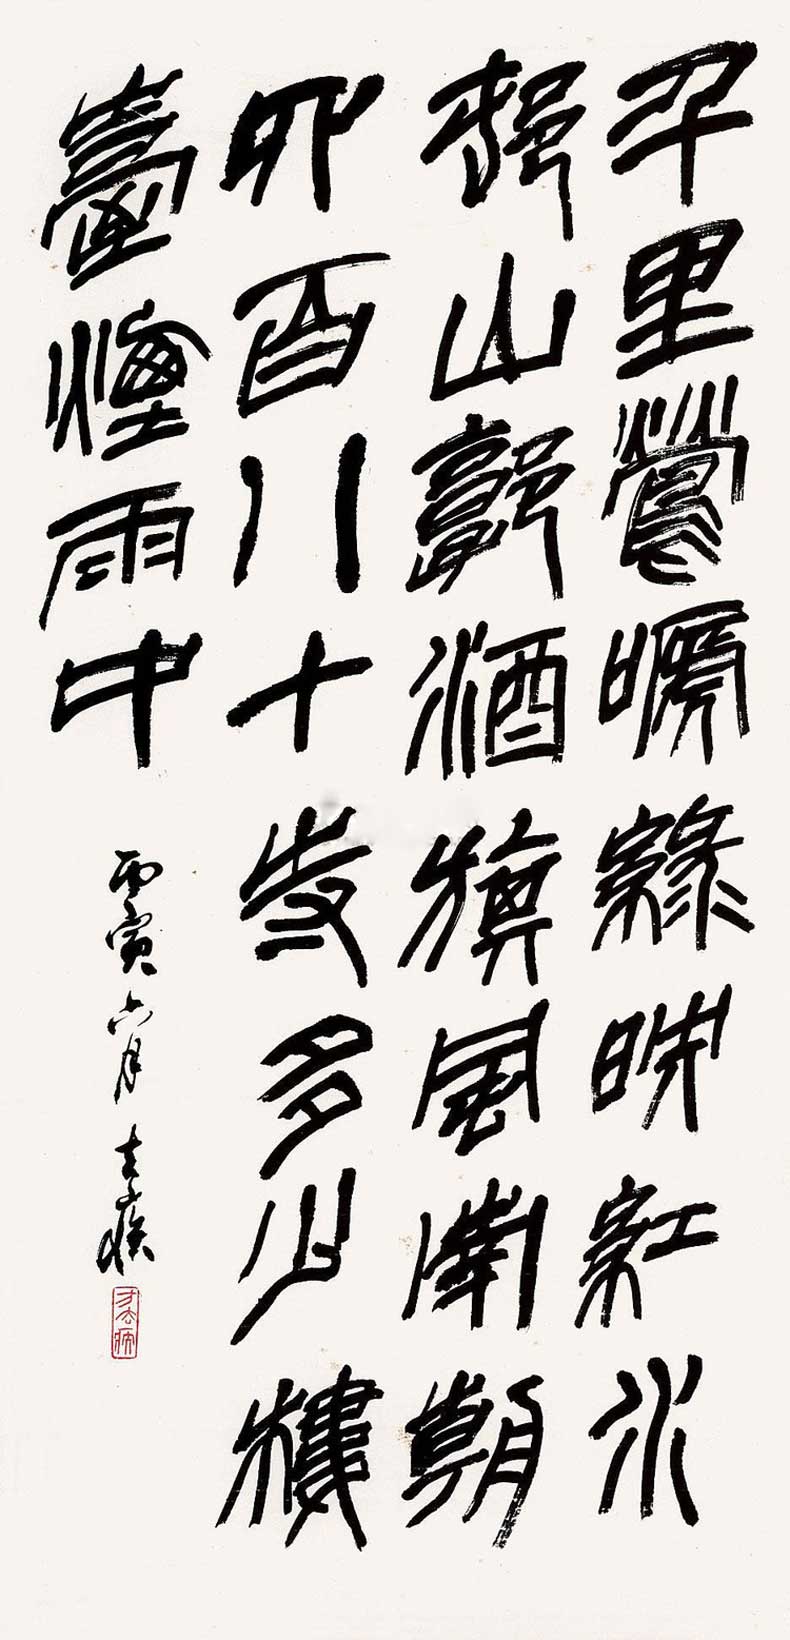 千里鶯嗁綠映紅水
邨山郭酒旗風南朝
四百八十寺多少樓
臺煙雨中
丙寅六月去疾
方去疾